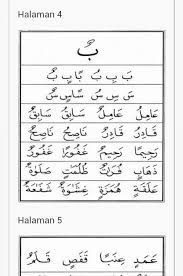 Halaman 4
بٌ
بَ بِ بُ بًا بٍ بٌ
سَ سِ سُ سًا سٍ سٌ
عَامِلُ عَامِلٌ سَابِقُ سَابِقٌ
قَادِرُ قَادِرٌ نَاصِحُ نَاصِحٌ
رَحِيمًا رَحِيمٌ غَفُورًا غَفُورٌ
ذَهَابٍ قُرْآنٌ ظُلُمٰتٍ صَلٰوةٌ
عَلَقَةٍ هُمَزَةٍ غِشٰوَةٌ شَفٰعَةٌ
Halaman 5
عَمَدٍ عِنَبًا قَفَصٍ قَلَمٌ